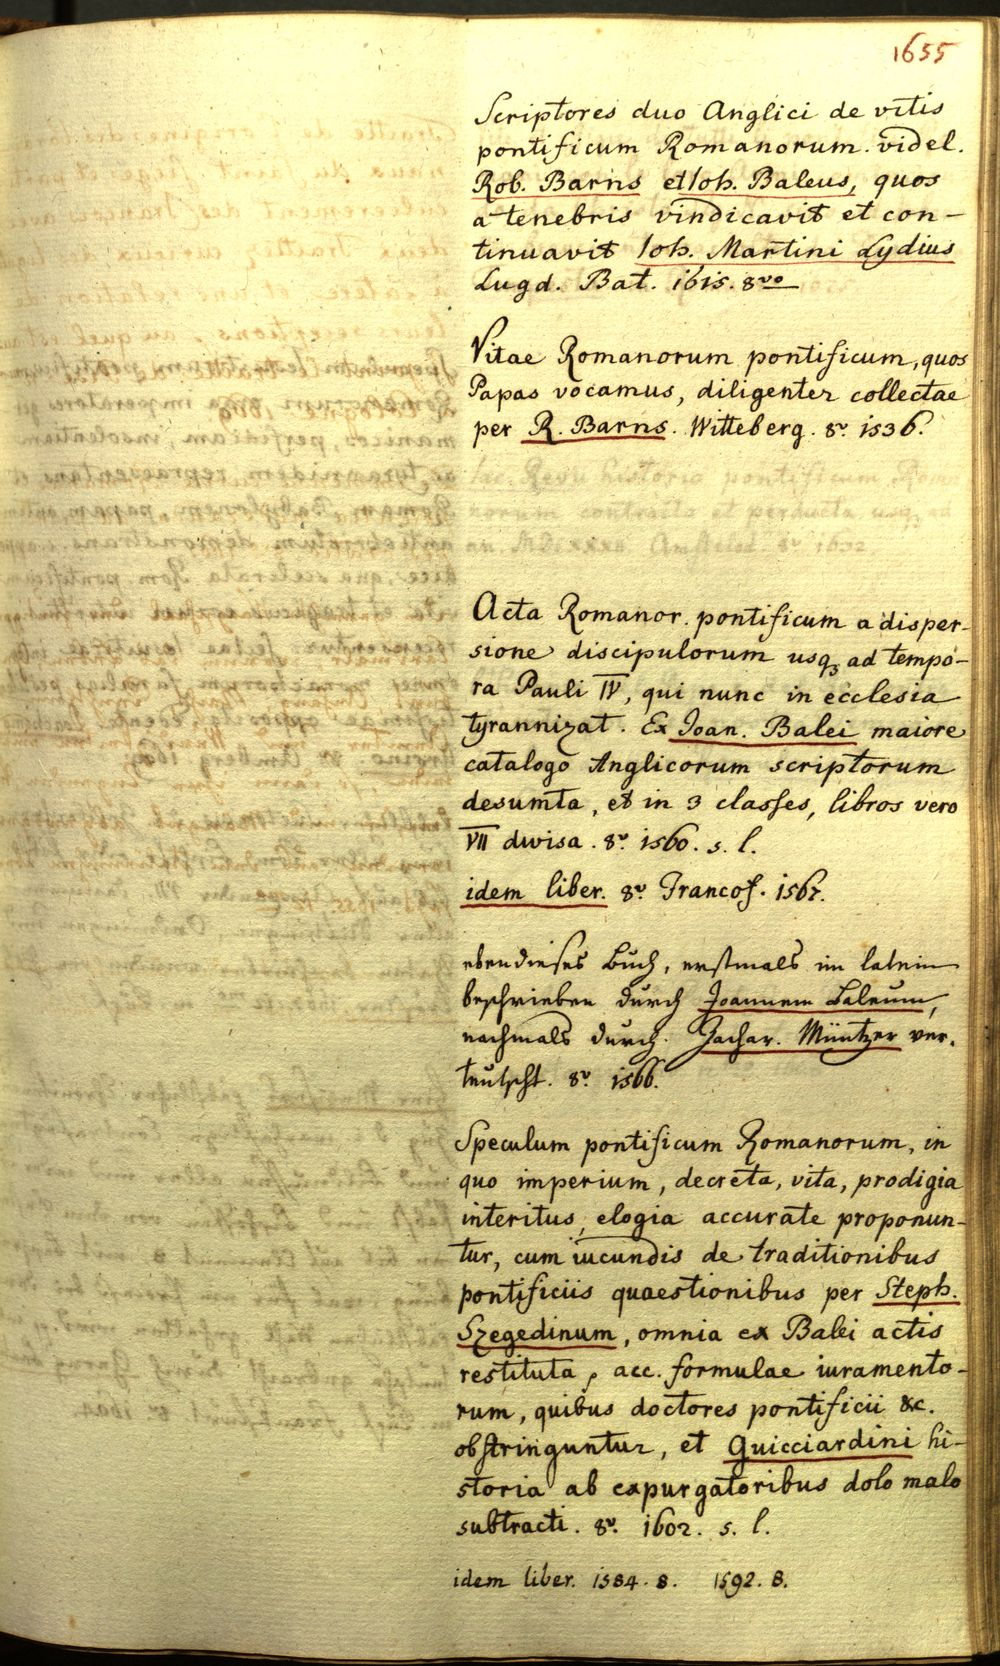 1655
Scriptores duo Anglici de vitis
pontificum Romanorum. videl.
Rob. Barns et Ioh. Baleus, quos
a tenebris vindicavit et con-
tinuavit Ioh. Martini Lydius
Lugd. Bat. 1615. 8vo
Vitae Romanorum pontificum, quos
Papas vocamus, diligenter collectae
per R. Barns. Witteberg. 8v. 1536.
Iac. Revii historia pontificum Roma
norum contracta et perducta usq; ad
an. Amstelod. 8v. 1632.
Acta Romanor. pontificum a disper-
sione discipulorum usq; ad tempo-
ra Pauli IV, qui nunc in ecclesia
tyrannizat. Ex Ioan. Balei maiore
catalogo Anglicorum scriptorum
desumta, et in 3 classes, libros vero
VII divisa. 8v. 1560. s. l.
idem liber. 8v. Francof. 1567.
ebendieses Buch, erstmals im latein
beschrieben durch Joannem Baleum,
nachmals durch Zachar. Müntzer ver-
teutscht. 8v. 1566.
Speculum pontificum Romanorum, in
quo imperium, decreta, vita, prodigia
interitus, elogia accurate proponun-
tur, cum iucundis de traditionibus
pontificiis quaestionibus per Steph.
Szegedinum, omnia ex Balei actis
restituta, acc. formulae iuramento-
rum, quibus doctores pontificii &c.
obstringuntur, et Guicciardini hi-
storia ab expurgatoribus dolo malo
subtracti. 8v. 1602. s. l.
idem liber. 1584. 8. 1592. 8.